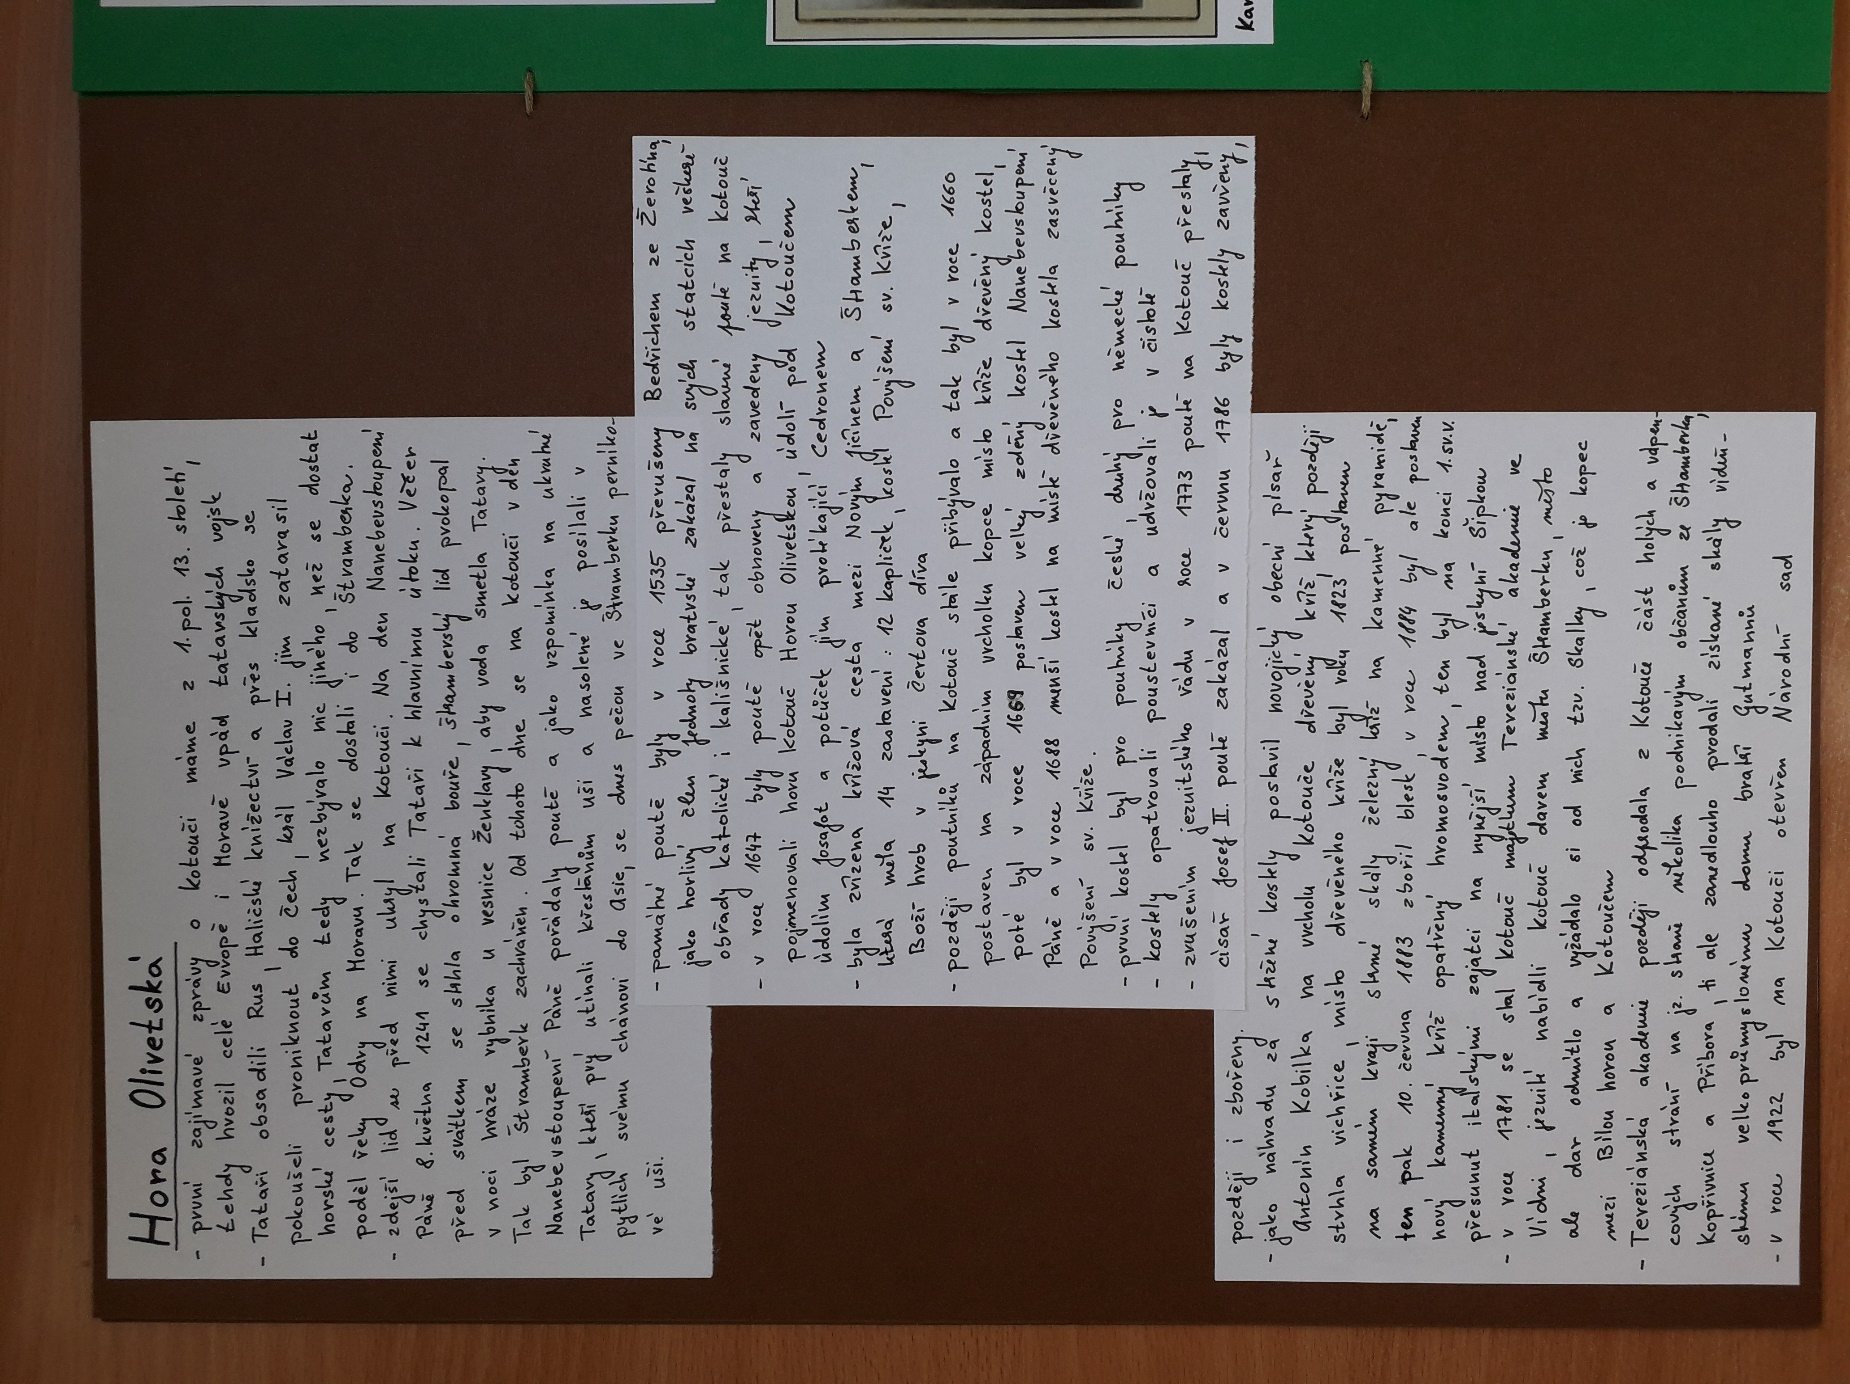 Hora Olivetská
- první zajímavé zprávy o Kotouči máme z 1. pol. 13. století,
tehdy hrozil celé Evropě i Moravě vpád tatarských vojsk
- Tataři obsadili Rus, Haličské knížectví a přes Kladsko se
pokoušeli proniknout do Čech, král Václav I. jim zatarasil
horské cesty, Tatarům tedy nezbývalo nic jiného, než se dostat
podél řeky Odry na Moravu. Tak se dostali i do Štramberka.
- zdejší lid se před nimi ukryl na Kotouči. Na den Nanebevstoupení
Páně 8. května 1241 se chystali Tataři k hlavnímu útoku. Večer
před svátkem se strhla ohromná bouře, štramberský lid prokopal
v noci hráze rybníka u vesnice Ženklavy, aby voda smetla Tatary.
Tak byl Štramberk zachráněn. Od tohoto dne se na Kotouči v den
Nanebevstoupení Páně pořádaly poutě a jako vzpomínka na ukrutné
Tatary, kteří prý utínali křesťanům uši a nasolené je posílali v
pytlích svému chánovi do Asie, se dnes pečou ve Štramberku perníko-
vé uši.
- památné poutě byly v roce 1535 přerušeny Bedřichem ze Žerotína,
jako horlivý člen Jednoty bratrské zakázal na svých statcích veškeré
obřady katolické i kališnické, tak přestaly slavné poutě na Kotouč
- v roce 1647 byly poutě opět obnoveny a zavedeny jezuity, kteří
pojmenovali horu Kotouč Horou Olivetskou, údolí pod Kotoučem
údolím Josafat a potůček jím protékající Cedronem
- byla zřízena křížová cesta mezi Novým Jičínem a Štramberkem,
která měla 14 zastavení: 12 kapliček, kostel Povýšení sv. Kříže,
Boží hrob v jeskyni Čertova díra
- později poutníků na Kotouč stále přibývalo a tak byl v roce 1660
postaven na západním vrcholku kopce místo kříže dřevěný kostel,
poté byl v roce 1669 postaven velký zděný kostel Nanebevstoupení
Páně a v roce 1688 menší kostel na místě dřevěného kostela zasvěcený
Povýšení sv. Kříže.
- první kostel byl pro poutníky české, druhý pro německé poutníky
- kostely opatrovali poustevníci a udržovali je v čistotě
- zrušením jezuitského řádu v roce 1773 poutě na Kotouč přestaly,
císař Josef II. poutě zakázal a v červnu 1786 byly kostely zavřeny,
později i zbořeny.
- jako náhradu za stržené kostely postavil novojický obecní písař
Antonín Kobilka na vrcholu Kotouče dřevěný kříž, který později
strhla vichřice, místo dřevěného kříže byl roku 1823 postaven
na samém kraji strmé skály železný kříž na kamenné pyramidě,
ten pak 10. června 1883 zbořil blesk, v roce 1884 byl ale postaven
nový kamenný kříž opatřený hromosvodem, ten byl na konci 1.sv.v.
přesunut italskými zajatci na nynější místo nad jeskyní Šipkou
- v roce 1781 se stal Kotouč majetkem Tereziánské akademie ve
Vídni, jezuité nabídli Kotouč darem městu Štramberku, město
ale dar odmítlo a vyžádalo si od nich tzv. Skalky, což je kopec
mezi Bílou horou a Kotoučem
- Tereziánská akademie později odprodala z Kotouče část holých a vápen-
cových strání na jz. straně několika podnikavým občanům ze Štramberka,
Kopřivnice a Příbora, ti ale zanedlouho prodali získané skály vídeň-
skému velkoprůmyslnému domu bratří Gutmannů
- v roce 1922 byl na Kotouči otevřen Národní sad
Kar